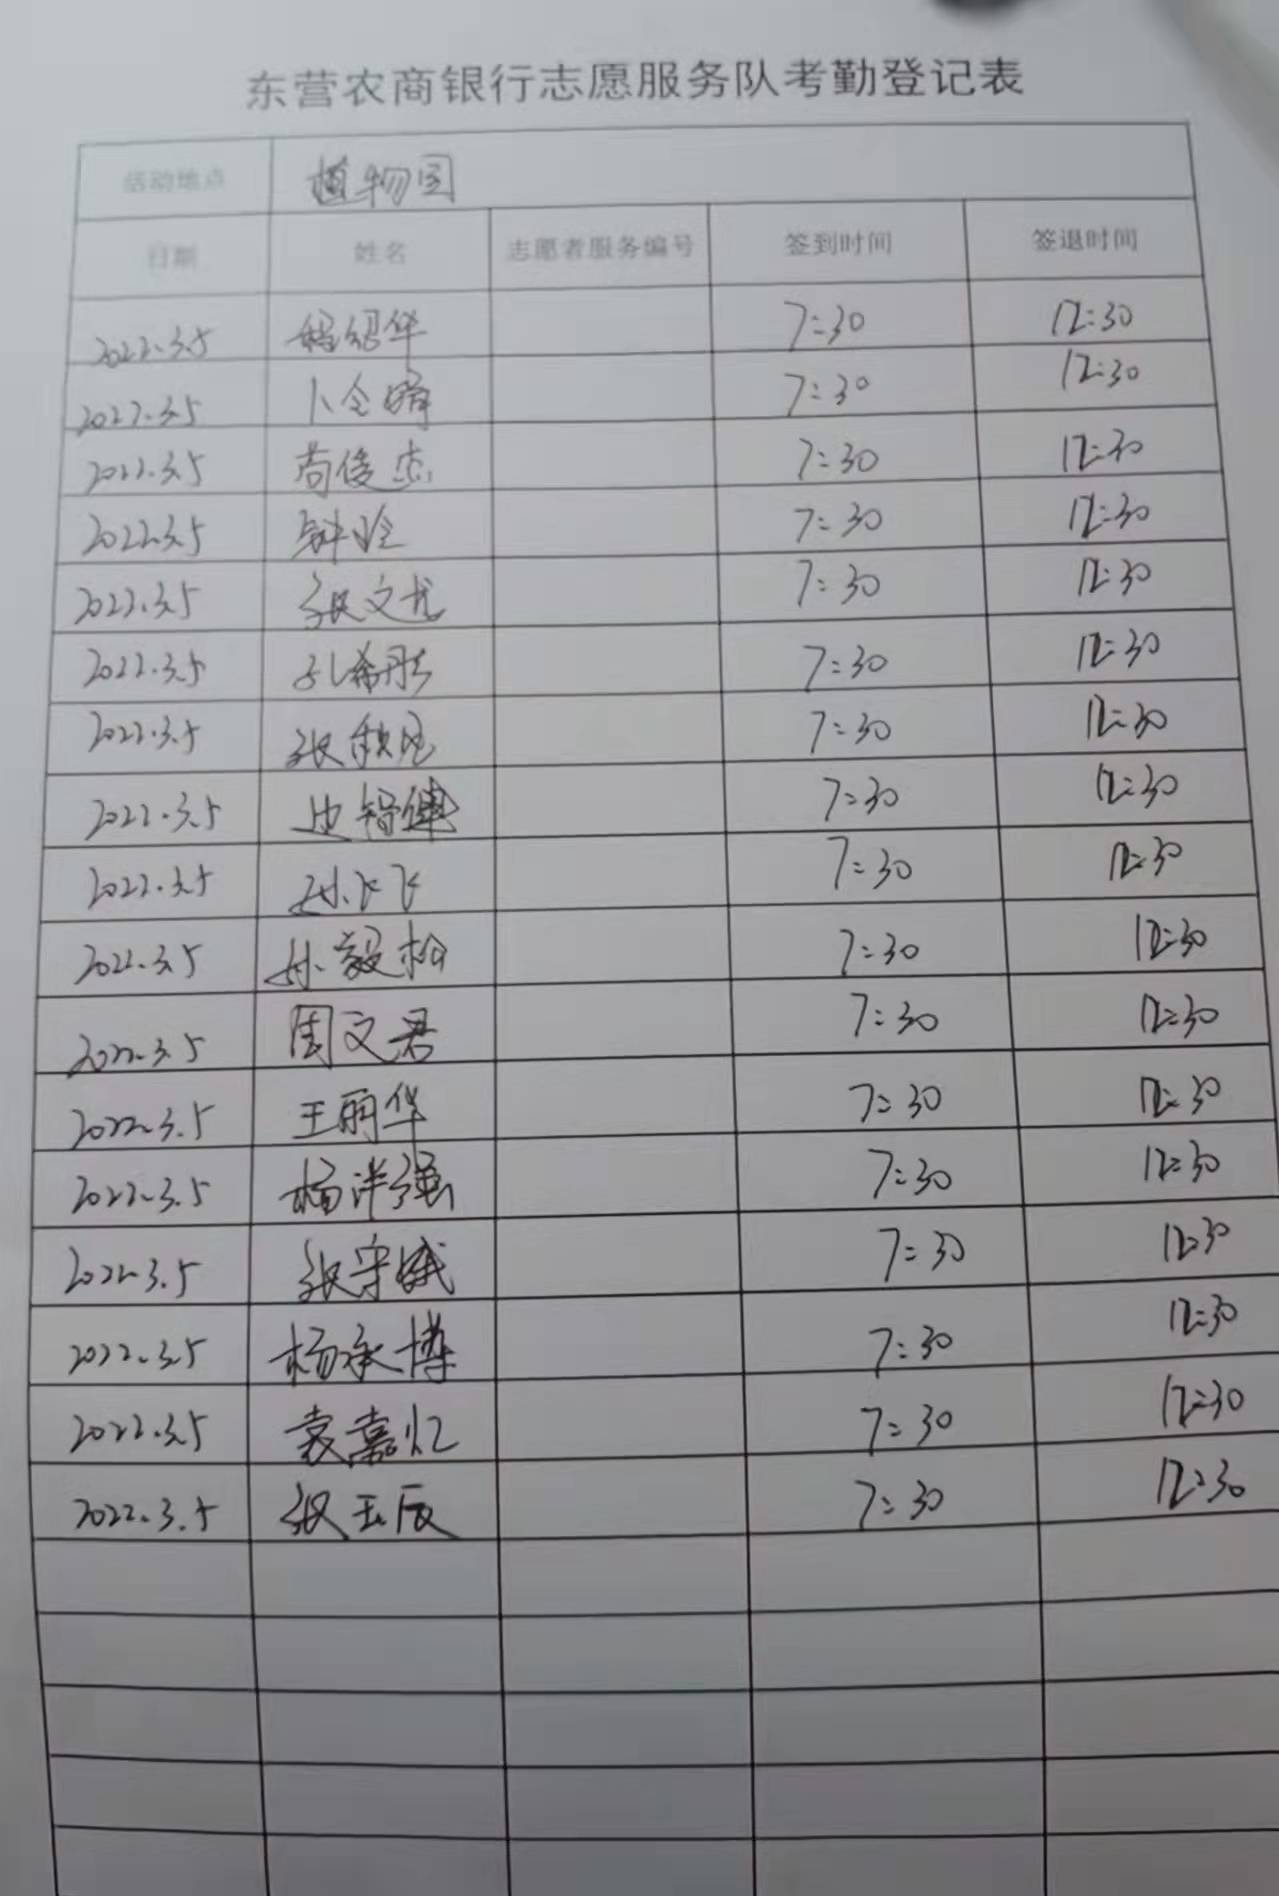 东营农商银行志愿服务队考勤登记表
活动地点 植物园
日期 姓名 志愿者服务编号 签到时间 签退时间
2022.3.5 程绍华 7:30 12:30
2022.3.5 7:30 12:30
2022.3.5 尚俊杰 7:30 12:30
2022.3.5 钟玲 7:30 12:30
2022.3.5 张文尤 7:30 12:30
2022.3.5 孔希彤 7:30 12:30
2022.3.5 张 7:30 12:30
2022.3.5 边智健 7:30 12:30
2022.3.5 孙飞飞 7:30 12:30
2022.3.5 孙毅松 7:30 12:30
2022.3.5 周文君 7:30 12:30
2022.3.5 王丽华 7:30 12:30
2022.3.5 杨洋强 7:30 12:30
2022.3.5 张守斌 7:30 12:30
2022.3.5 杨承博 7:30 12:30
2022.3.5 袁嘉忆 7:30 12:30
2022.3.5 张玉辰 7:30 12:30